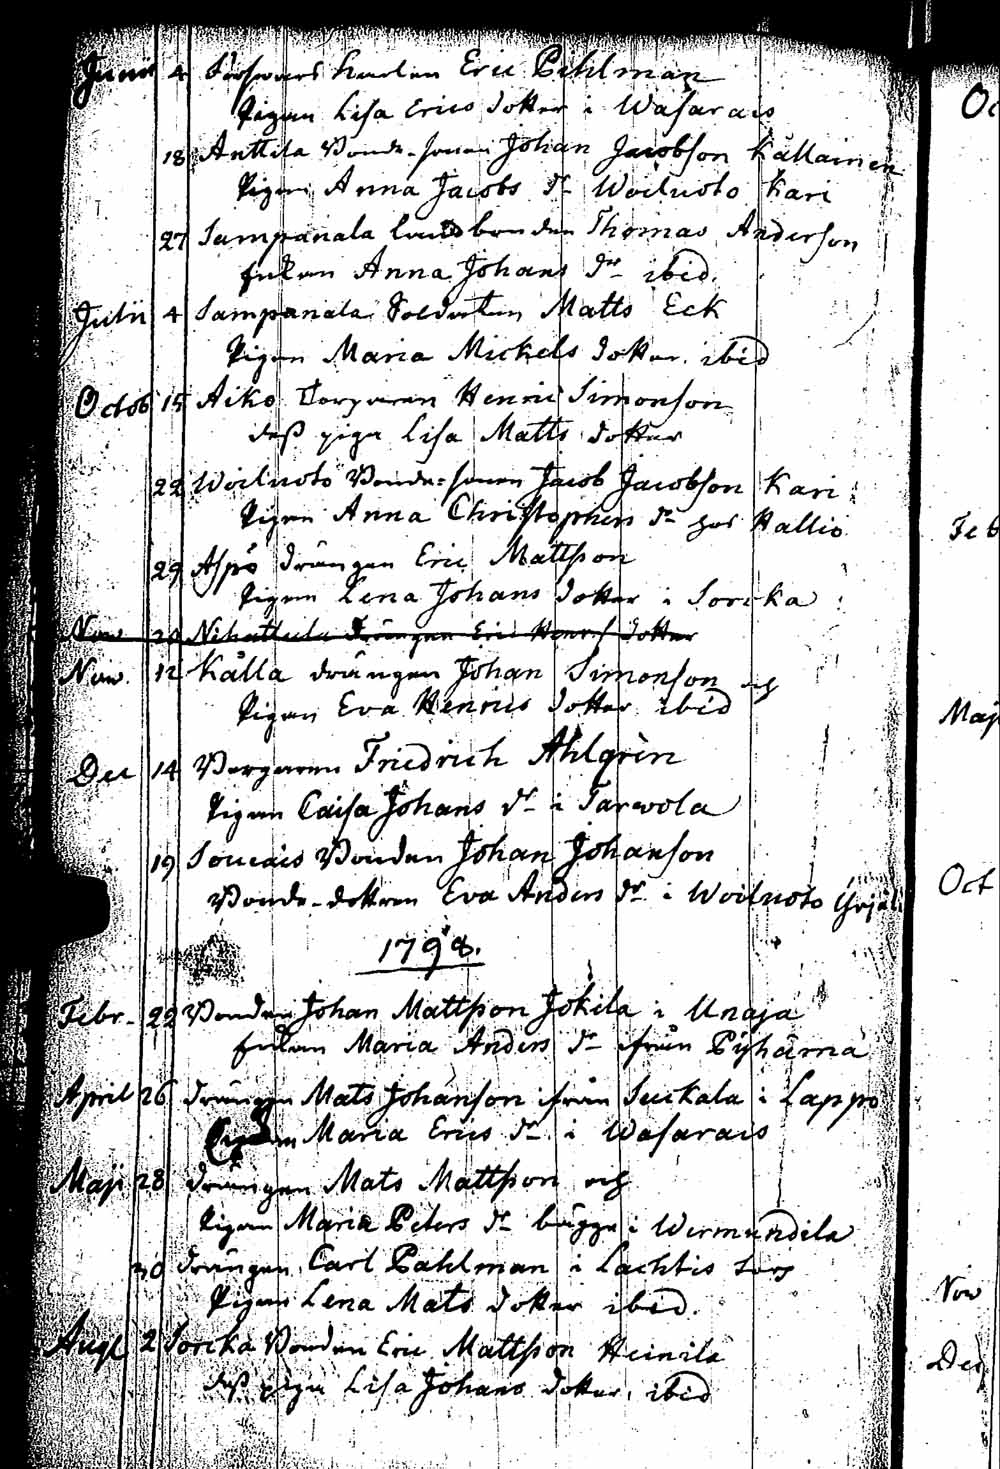 Junii 4 Försvars karlen Eric Pihlman
Pigan Lisa Erics dotter i Wasarais
18 Anttila Bonde-sonen Johan Jacobson Källainen
Pigan Anna Jacobs dr Woiluoto Kari
27 Sampanala landbonden Thomas Anderson
Enkan Anna Johans dr ibid.
Julii 4 Sampanala Soldaten Matts Eck
Pigan Maria Mickels dotter ibid
Octob 15 Aiko Torparen Henric Simonson
dess piga Lisa Matts dotter
22 Woiluoto Bonde-sonen Jacob Jacobson Kari
Pigan Anna Christophers dr hos Hallio
29 Aspö drängen Eric Mattsson
Pigan Lena Johans dotter i Sorcka
Nov. 20 Nihattula drängen Eric Henrs dotter
Nov. 12 Källa drängen Johan Simonson och
Pigan Eva Henrics dotter ibid
Dec 14 Friedrich Ahlgrén
Pigan Caisa Johans dr i Tarwola
19 Soucais Bonden Johan Johanson
Bonde-dottren Eva Anders dr i Woiluoto Yrjäli
1798.
Febr. 22 Bonden Johan Mattsson Jokela i Unaja
Enkan Maria Anders dr ifrån Pyhämä
April 26 drängen Mats Johanson ifrån Suikala i Lappo
Pigan Maria Erics dr i Wasarais
Maji 28 drängen Mats Mattsson och
Pigan Maria Peters dr bägge i Wermundila
30 drängen Carl Pahlman i Lachtis
Pigan Lena Mats dotter ibid.
Aug 2 Sorcka Bonden Eric Mattsson Heinila
dess piga Lisa Johans dotter ibid
Oc
Feb
Maj
Oct
Nov
Dec